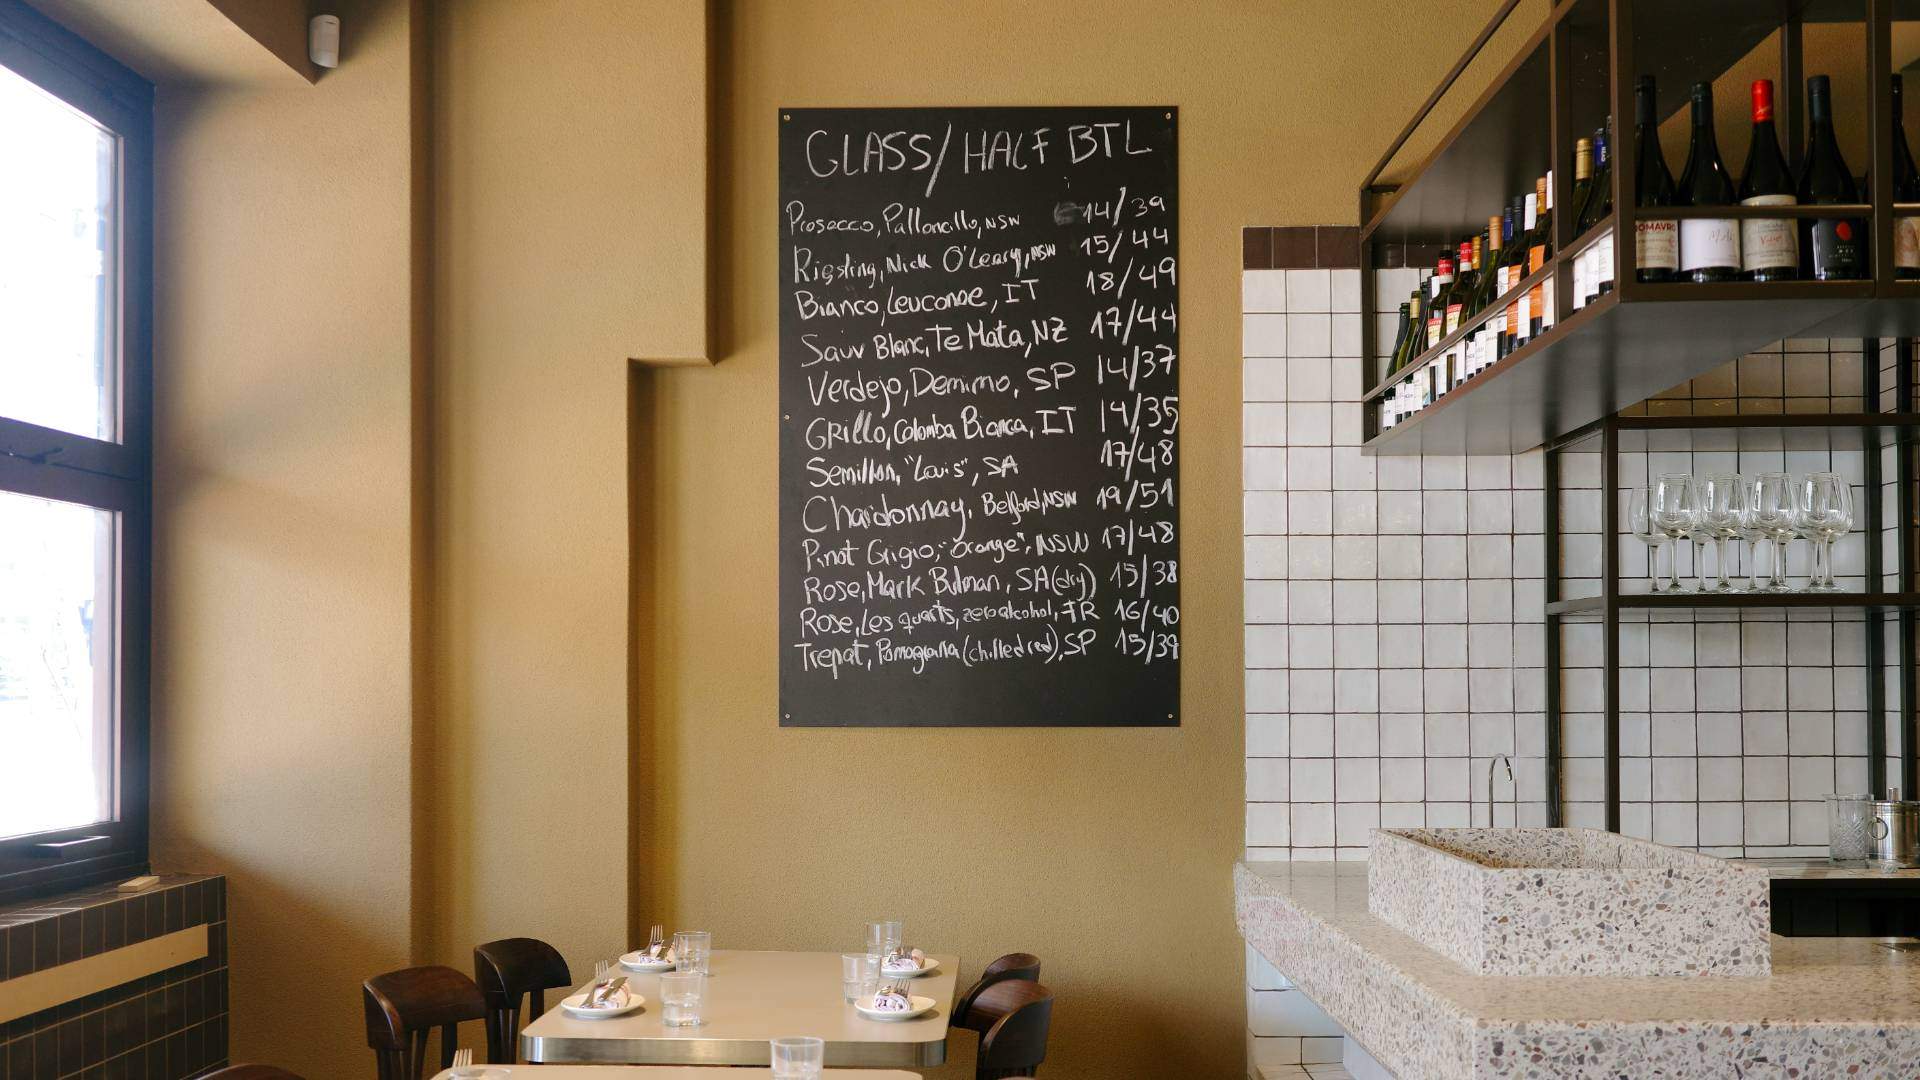 GLASS/HALF BTL
Prosecco, Palloncillo, NSW 14/39
Riesling, Nick O'Leary, NSW 15/44
Bianco, Leuconoe, IT 18/49
Sauv Blanc, Te Mata, NZ 17/44
Verdejo, Demimo, SP 14/37
GRillo, Colomba Bianca, IT 14/35
Semillon, "Louis", SA 17/48
Chardonnay, Belford, NSW 19/51
Pinot Grigio, "Orange", NSW 17/48
Rose, Mark Bulman, SA (dry) 15/38
Rose, Les quarts, zero alcohol, FR 16/40
Trepat, (chilled red), SP 15/39